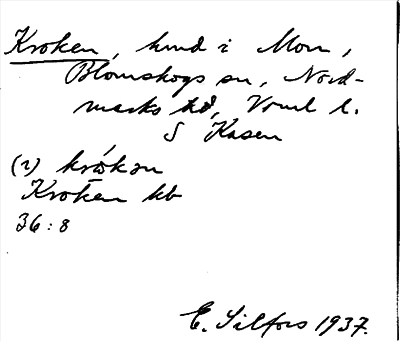 Kroken, hmd i Mon,
Blomskogs sn, Nord-
marks hd, Vrml l.
S Kasen
(i) krǿkən
Kroken kb
36:8
E. Silfors 1937.